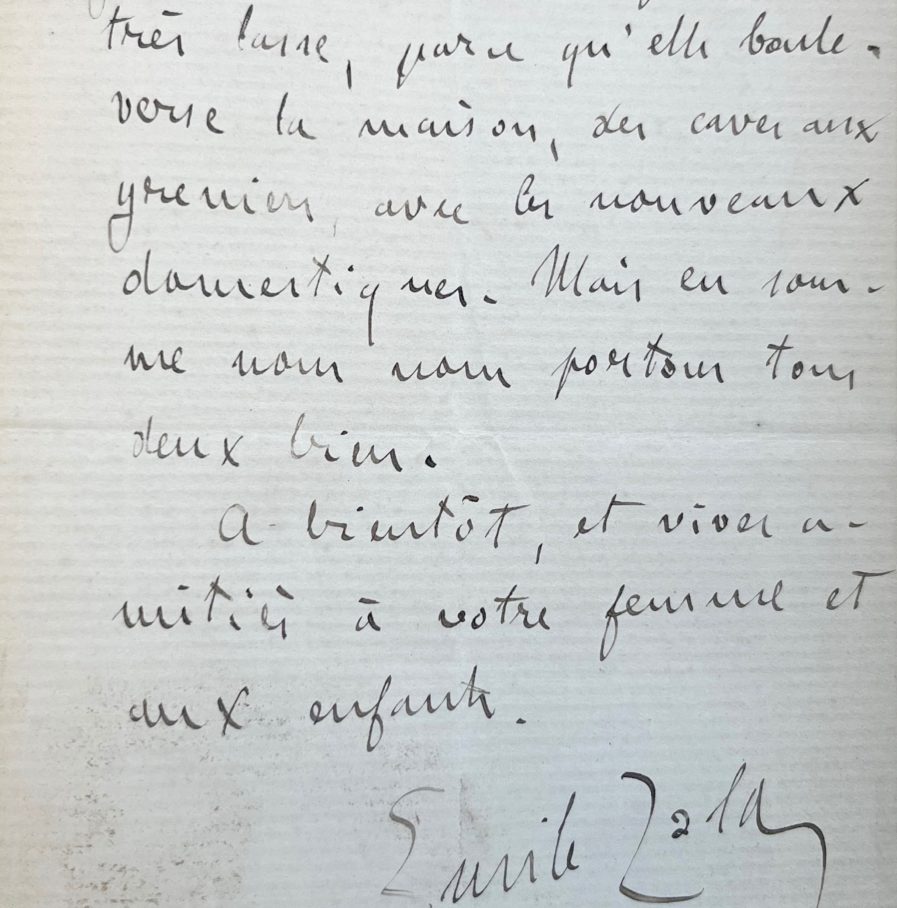 très lasse, parce qu'elle boule-
verse la maison, des caves aux
greniers, avec les nouveaux
domestiques. Mais en som-
me nous nous portons tous
deux bien.
A bientôt, et vives a-
mitiés à votre femme et
aux enfants.
Emile Zola